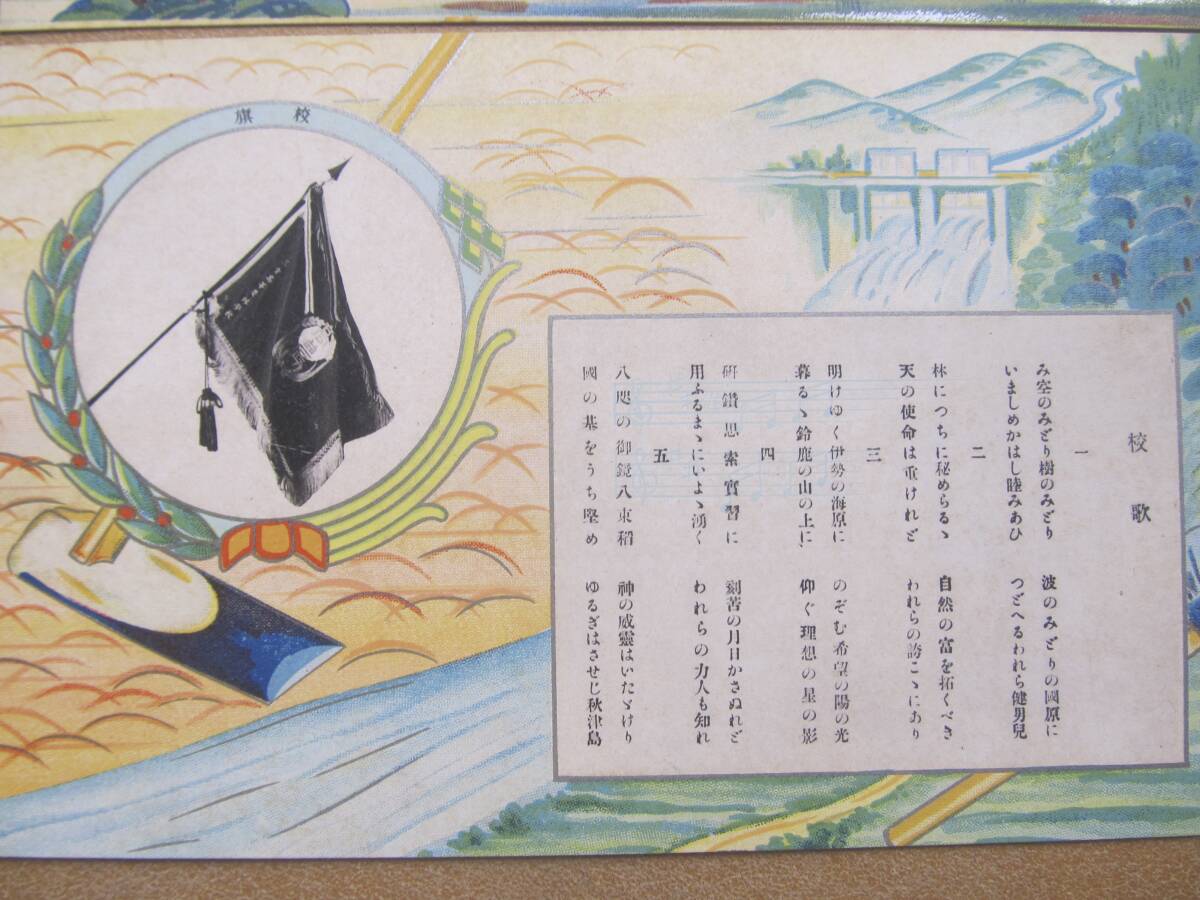 旗校
校歌
一
み空のみどり樹のみどり　波のみどりの國原に
いましめかはし睦みあひ　つどへるわれら健男兒
二
林につちに秘めらるゝ　自然の富を拓くべき
天の使命は重けれど　われらの誇こゝにあり
三
明けゆく伊勢の海原に　のぞむ希望の陽の光
暮るゝ鈴鹿の山の上に　仰ぐ理想の星の影
四
硏鑽思索實習に　刻苦の月日かさぬれど
用ふるまゝにいよゝ湧く　われらの力人も知れ
五
八咫の御鏡八束稻　神の威靈はいたゞけり
國の基をうち堅め　ゆるぎはさせじ秋津島